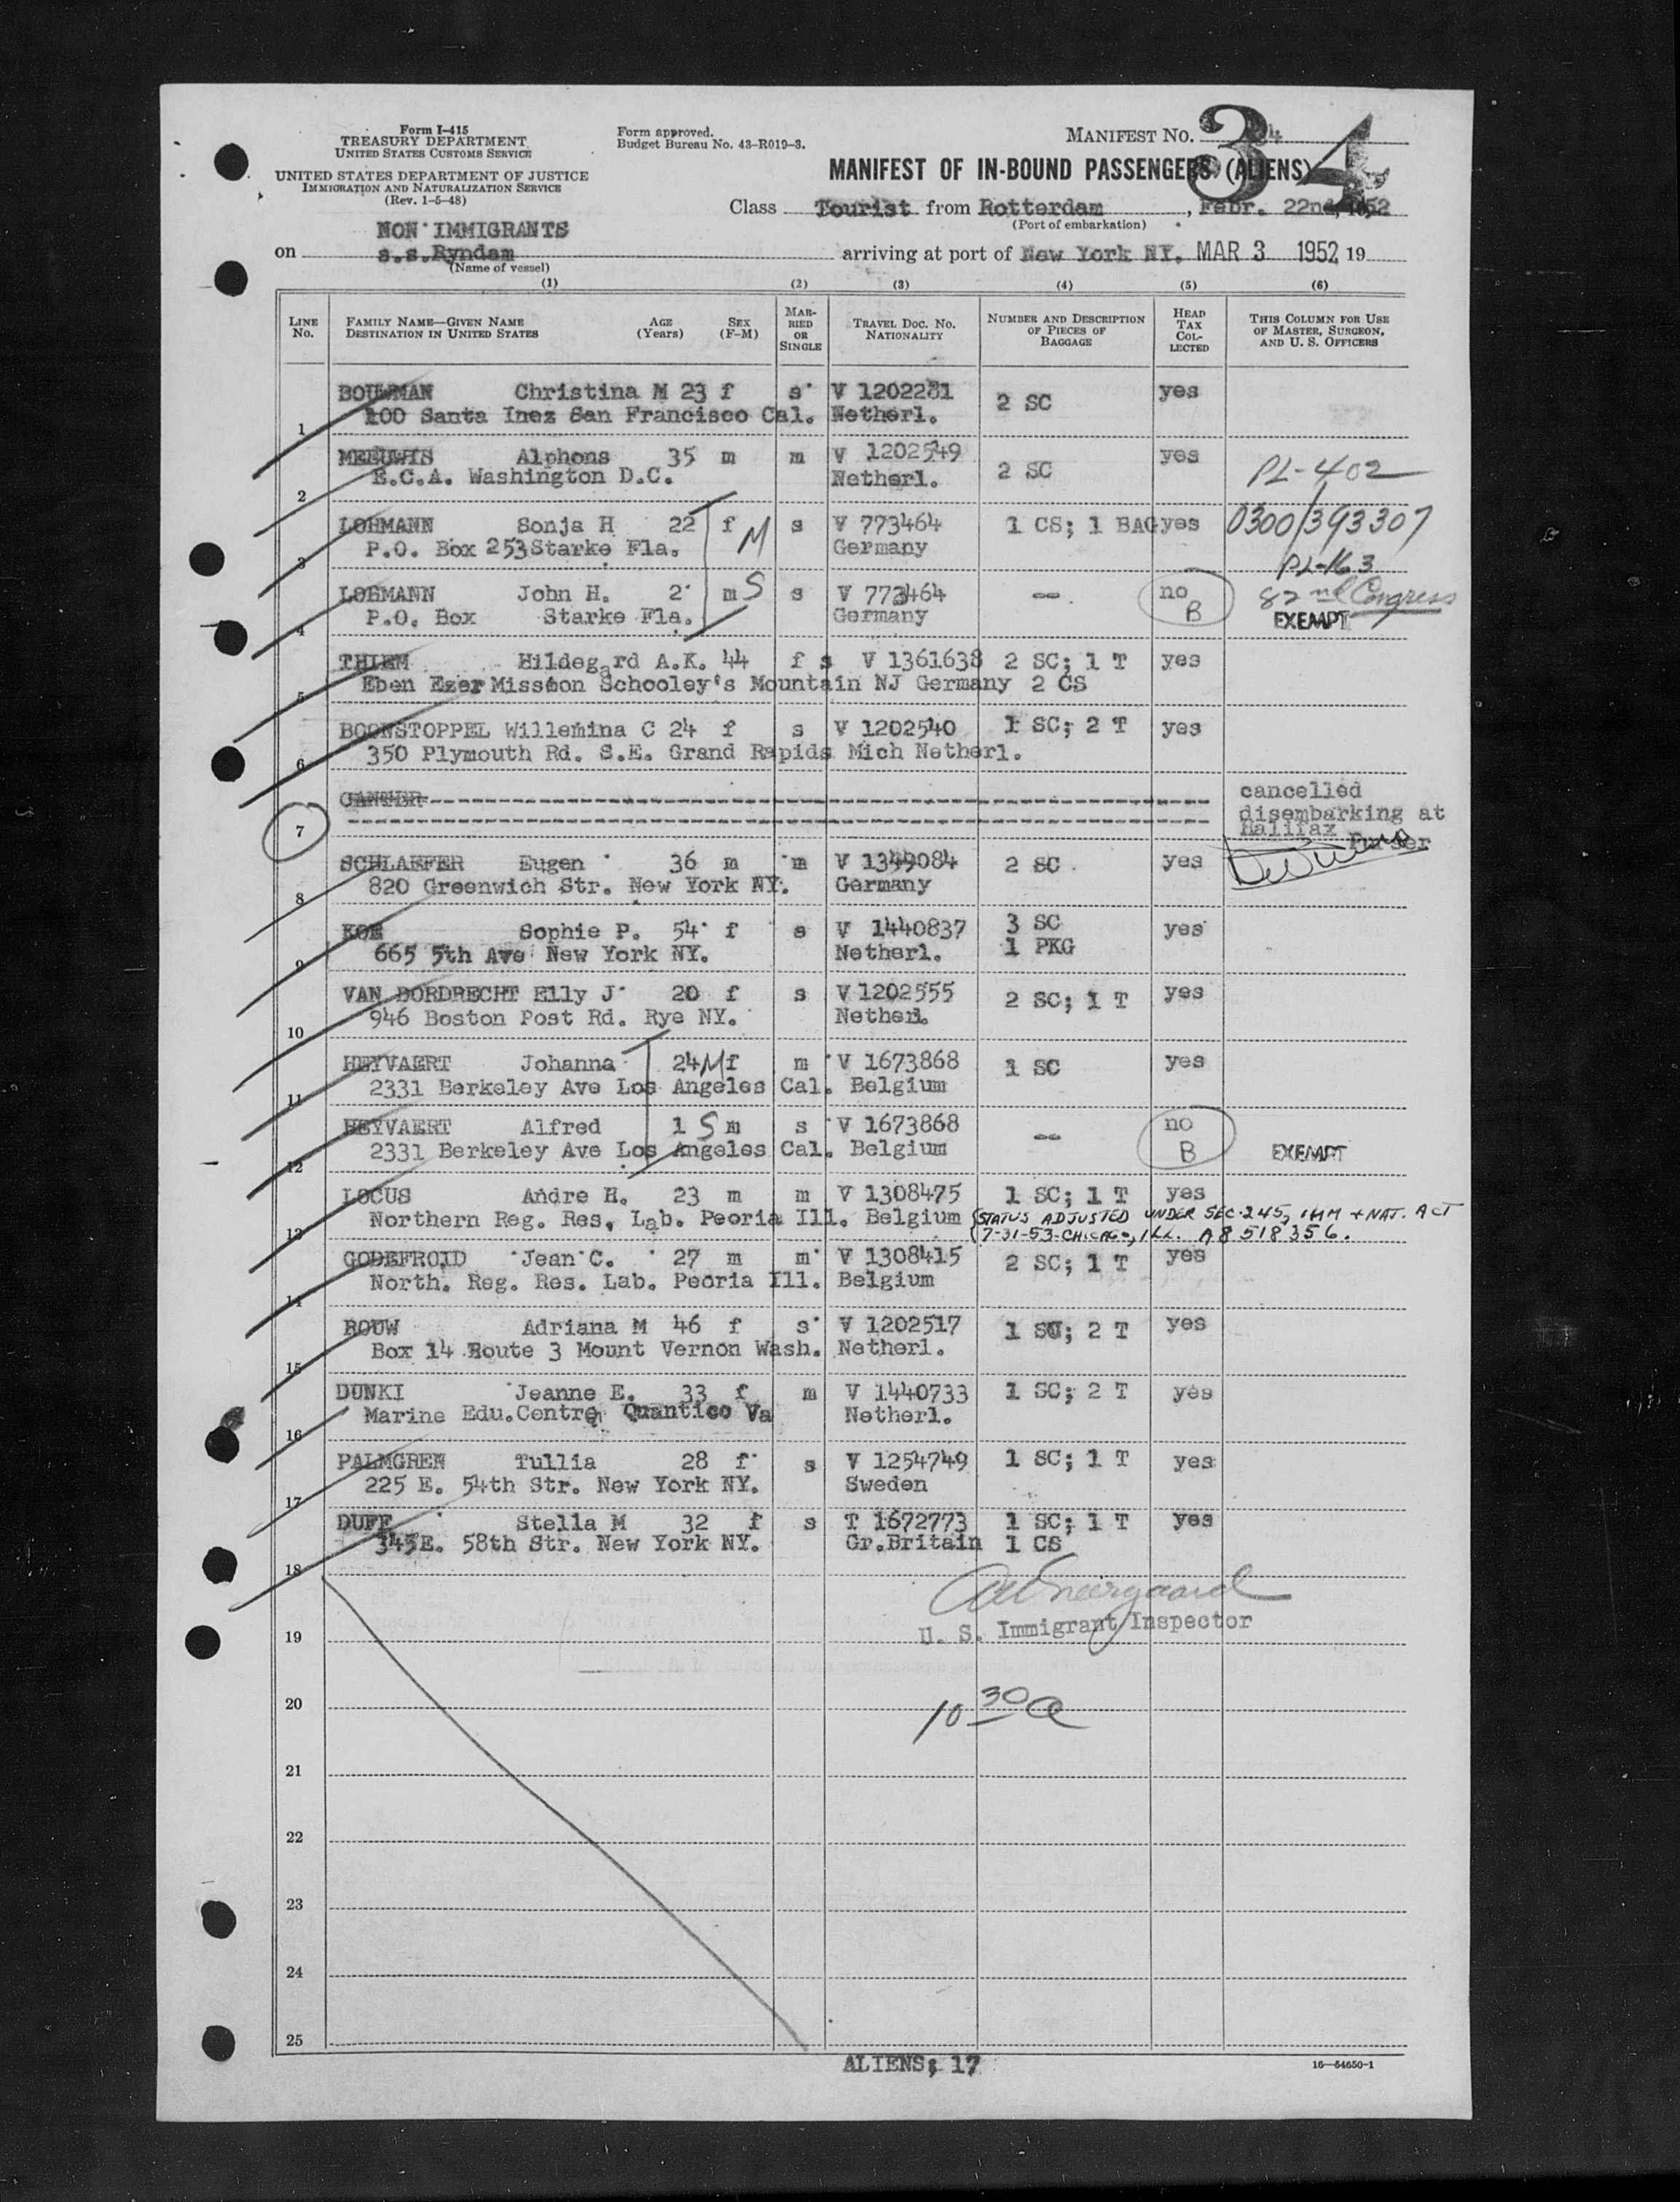 Form I-415
TREASURY DEPARTMENT
UNITED STATES CUSTOMS SERVICE
UNITED STATES DEPARTMENT OF JUSTICE
IMMIGRATION AND NATURALIZATION SERVICE
(Rev. 1-5-48)
Form approved.
Budget Bureau No. 43-R019-3.
MANIFEST NO. 34
MANIFEST OF IN-BOUND PASSENGERS (ALIENS)
Class Tourist from Rotterdam, Febr. 22nd, 1952
(Port of embarkation)
NON IMMIGRANTS
on s.s.Ryndam arriving at port of New York NY. MAR 3 1952 19
(Name of vessel)
(1) (2) (3) (4) (5) (6)
LINE NO. FAMILY NAME—GIVEN NAME DESTINATION IN UNITED STATES AGE (Years) SEX (F-M) MARRIED OR SINGLE TRAVEL DOC. NO. NATIONALITY NUMBER AND DESCRIPTION OF PIECES OF BAGGAGE HEAD TAX COLLECTED THIS COLUMN FOR USE OF MASTER, SURGEON, AND U. S. OFFICERS
BOUWMAN Christina M 23 f s V 1202281 2 SC yes
1 100 Santa Inez San Francisco Cal. Netherl.
MEEUWIS Alphons 35 m m V 1202549 2 SC yes PL-402
2 E.C.A. Washington D.C. Netherl.
LOHMANN Sonja H 22 f M s V 773464 1 CS; 1 BAG yes 0300/393307
3 P.O. Box 253 Starke Fla. Germany PL-163
LOHMANN John H. 2 m S s V 773464 -- no B 82nd Congress
4 P.O. Box Starke Fla. Germany EXEMPT
THIEM Hildegard A.K. 44 f s V 1361638 2 SC; 1 T yes
5 Eben Ezer Mission Schooley's Mountain NJ Germany 2 CS
BOONSTOPPEL Willemina C 24 f s V 1202540 1 SC; 2 T yes
6 350 Plymouth Rd. S.E. Grand Rapids Mich Netherl.
7 cancelled
disembarking at
Halifax
Purser
SCHLAEFER Eugen 36 m m V 1349084 2 SC yes
8 820 Greenwich Str. New York NY. Germany
KOE Sophie P. 54 f s V 1440837 3 SC yes
9 665 5th Ave New York NY. Netherl. 1 PKG
VAN DORDRECHT Elly J 20 f s V 1202555 2 SC; 1 T yes
10 946 Boston Post Rd. Rye NY. Netherl.
HEYVAERT Johanna 24 M f m V 1673868 1 SC yes
11 2331 Berkeley Ave Los Angeles Cal. Belgium
HEYVAERT Alfred 1 S m s V 1673868 -- no B EXEMPT
12 2331 Berkeley Ave Los Angeles Cal. Belgium
LOCUS Andre H. 23 m m V 1308475 1 SC; 1 T yes
13 Northern Reg. Res. Lab. Peoria Ill. Belgium STATUS ADJUSTED UNDER SEC. 245, IMM + NAT. ACT
7-31-53-CHICAGO, ILL. A8 518 356.
GODEFROID Jean C. 27 m m V 1308415 2 SC; 1 T yes
14 North. Reg. Res. Lab. Peoria Ill. Belgium
ROUW Adriana M 46 f s V 1202517 1 SC; 2 T yes
15 Box 14 Route 3 Mount Vernon Wash. Netherl.
DUNKI Jeanne E. 33 f m V 1440733 1 SC; 2 T yes
16 Marine Edu.Centre, Quantico Va Netherl.
PALMGREN Tullia 28 f s V 1254749 1 SC; 1 T yes
17 225 E. 54th Str. New York NY. Sweden
DUFF Stella M 32 f s T 1672773 1 SC; 1 T yes
18 345 E. 58th Str. New York NY. Gr.Britain 1 CS
19 U. S. Immigrant Inspector
20 10 30 a
21
22
23
24
25
ALIENS; 17
16—54650-1